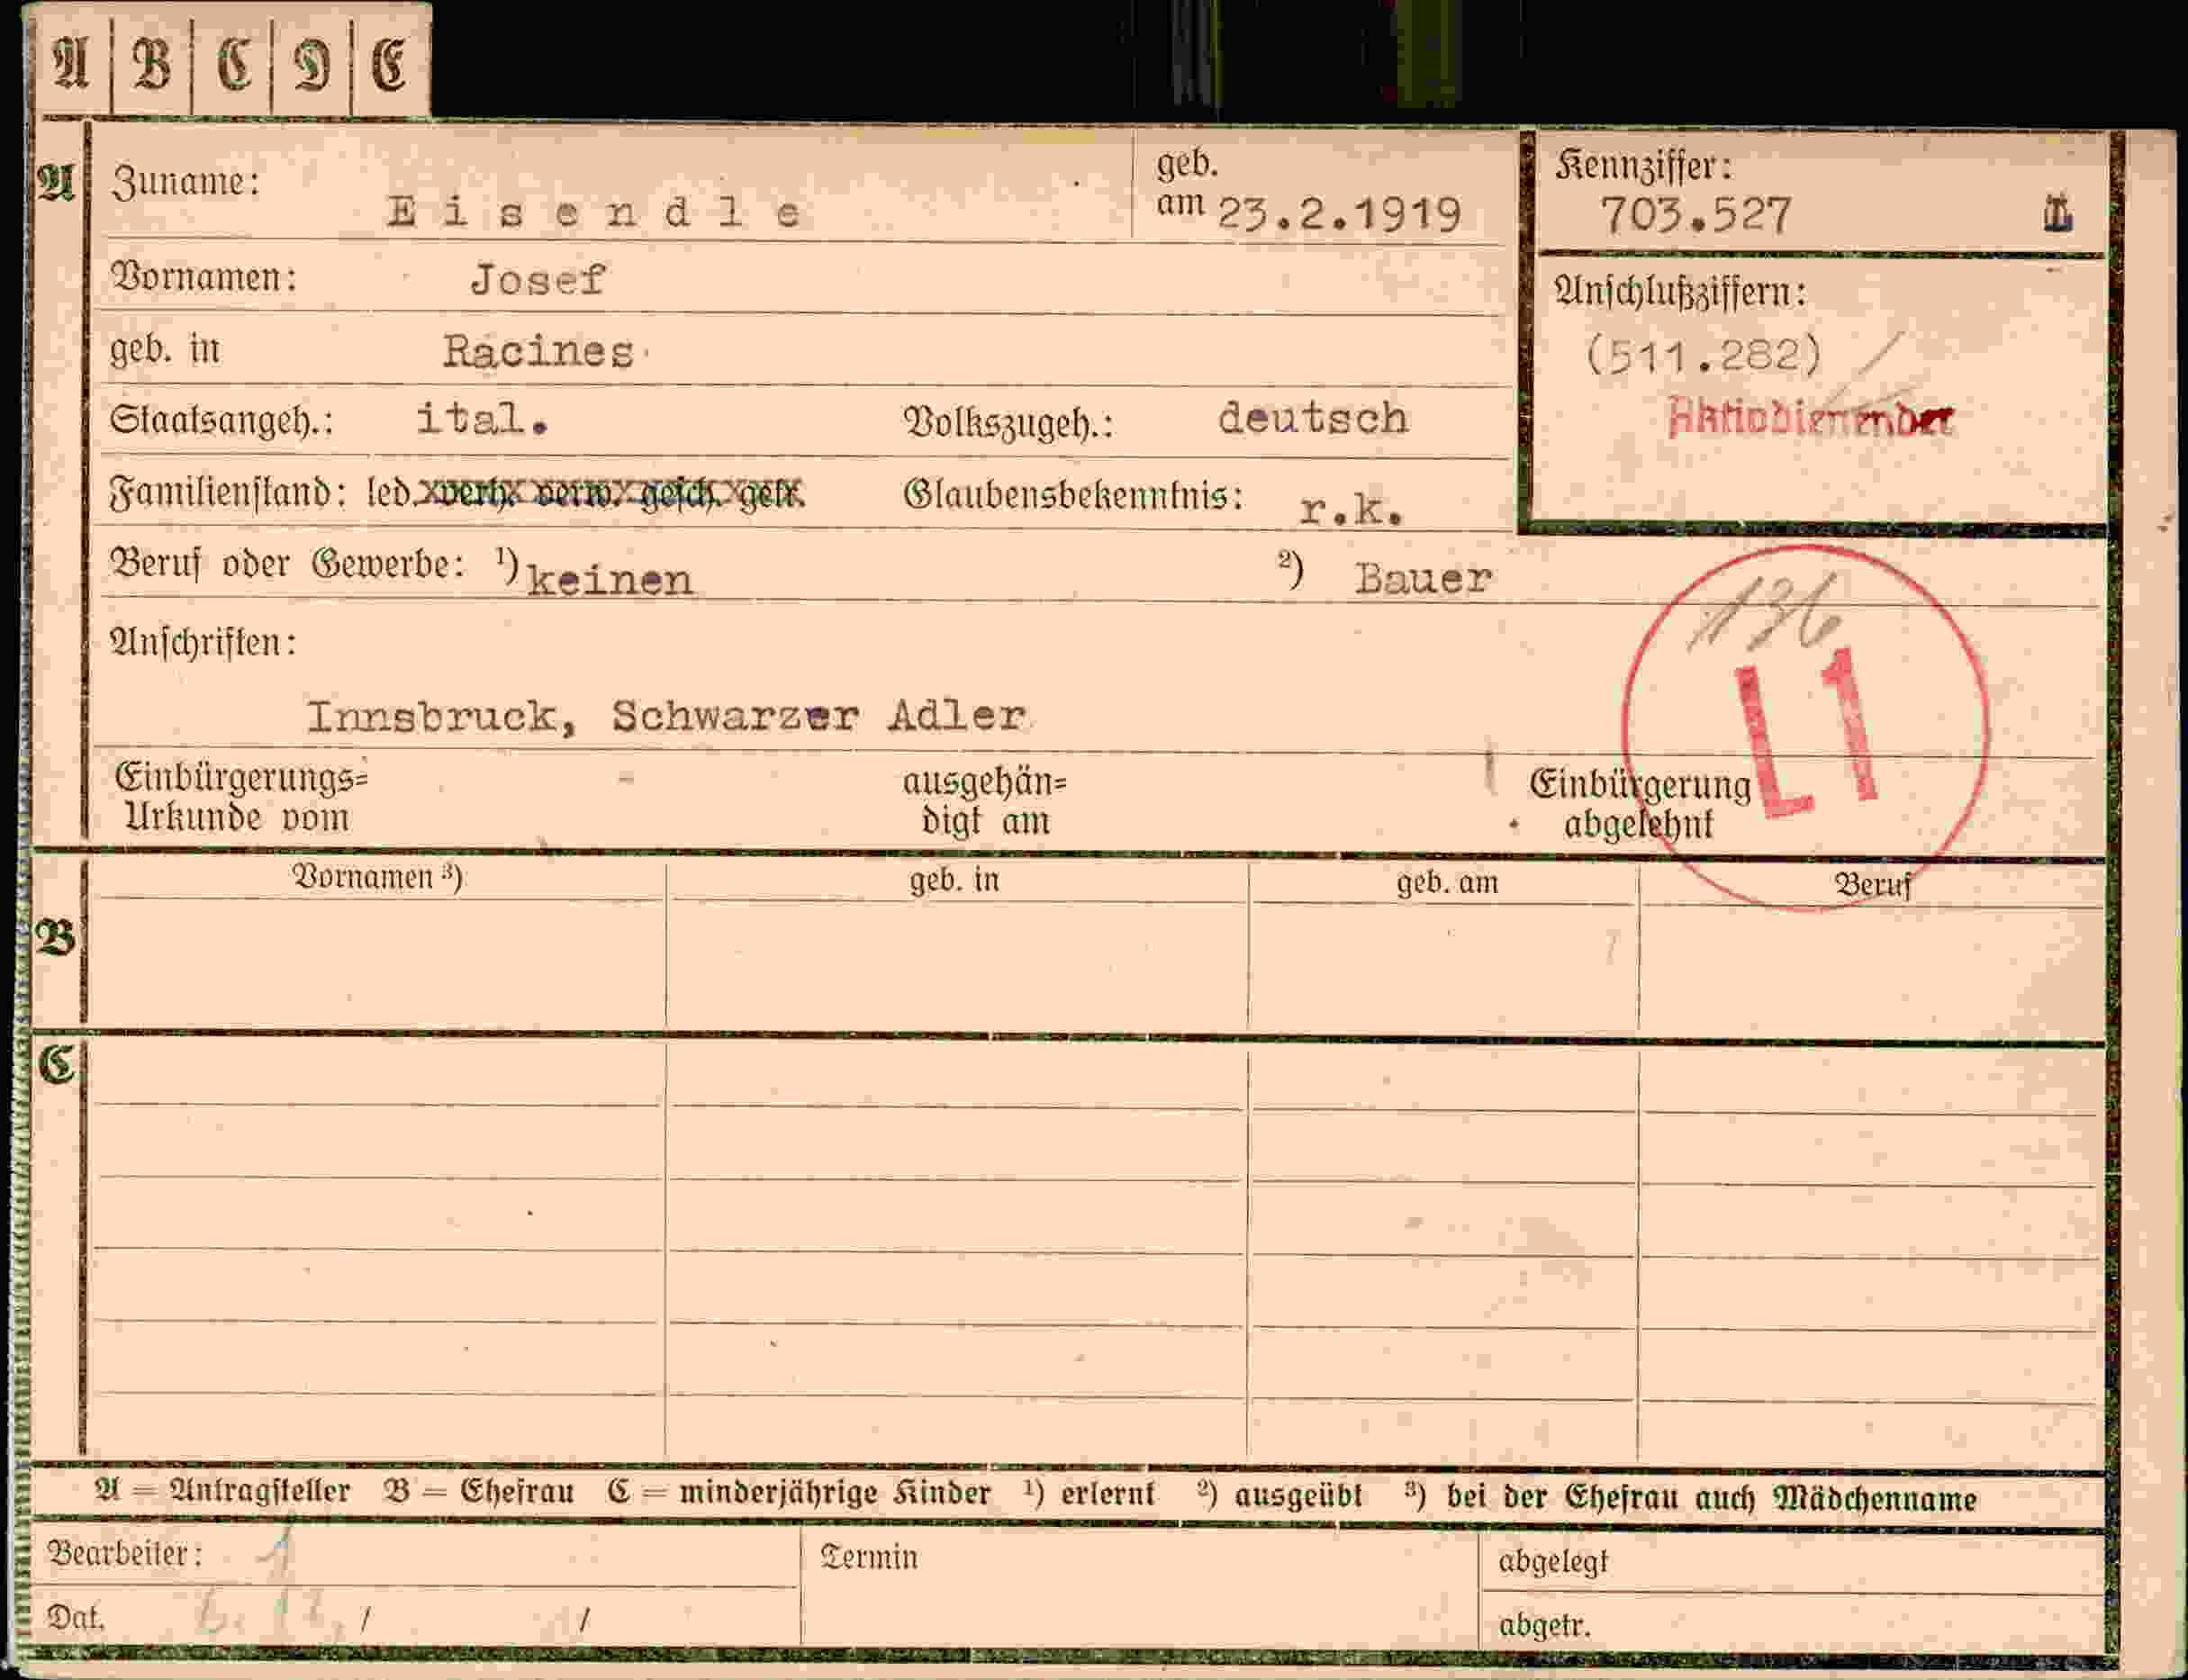 A B C D E
A Zuname: Eisendle geb. am 23.2.1919
Kennziffer: 703.527
Vornamen: Josef
Anschlußziffern:
(511.282) /
geb. in Racines
Staatsangeh.: ital. Volkszugeh.: deutsch
Familienstand: led. verh. verw. gesch. getr. Glaubensbekenntnis: r.k.
Beruf oder Gewerbe: ¹) keinen ²) Bauer
136
L1
Anschriften:
Innsbruck, Schwarzer Adler
Einbürgerungs=
Urkunde vom
ausgehän=
digt am
Einbürgerung
abgelehnt
B Vornamen ³) geb. in geb. am Beruf
C
A = Antragsteller B = Ehefrau C = minderjährige Kinder ¹) erlernt ²) ausgeübt ³) bei der Ehefrau auch Mädchenname
Bearbeiter: Termin abgelegt
Dat. / / abgetr.